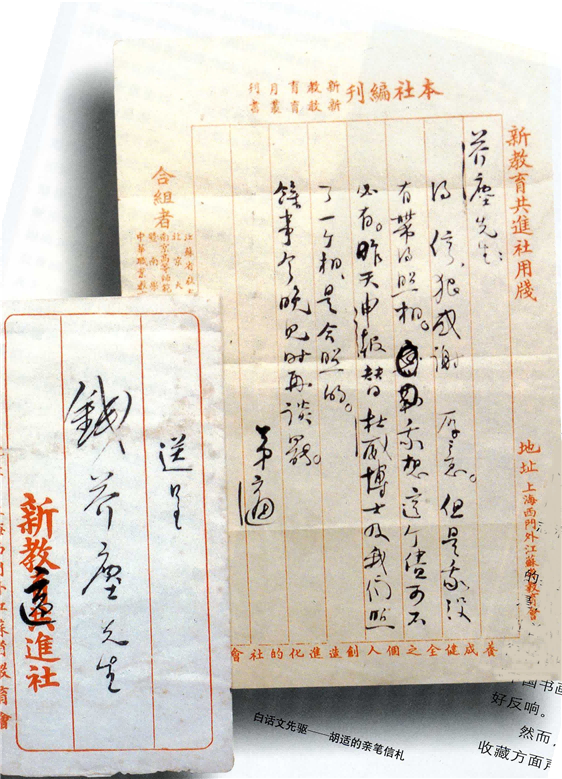 本社編刊
新教育月刊
新教育叢書
新教育共進社用牋
地址 上海西門外江蘇省教育會
芥塵先生:
得信,狠感謝 厚意。但是我没
有帶得照相。我想這个儘可不
必有。昨天申報替杜威博士及我们照
了一个相,是合照的。
餘事今晚見时再談罷。
弟適
合組者
江蘇省教
北京大
南京高等師範
暨南學
中華職業教
養成健全之個人創造進化的社會
送呈
錢芥塵先生
適
新教育共進社
上海西門外江蘇省教育會
白话文先驱——胡适的亲笔信札
国书画
好反响。
然而,
收藏方面